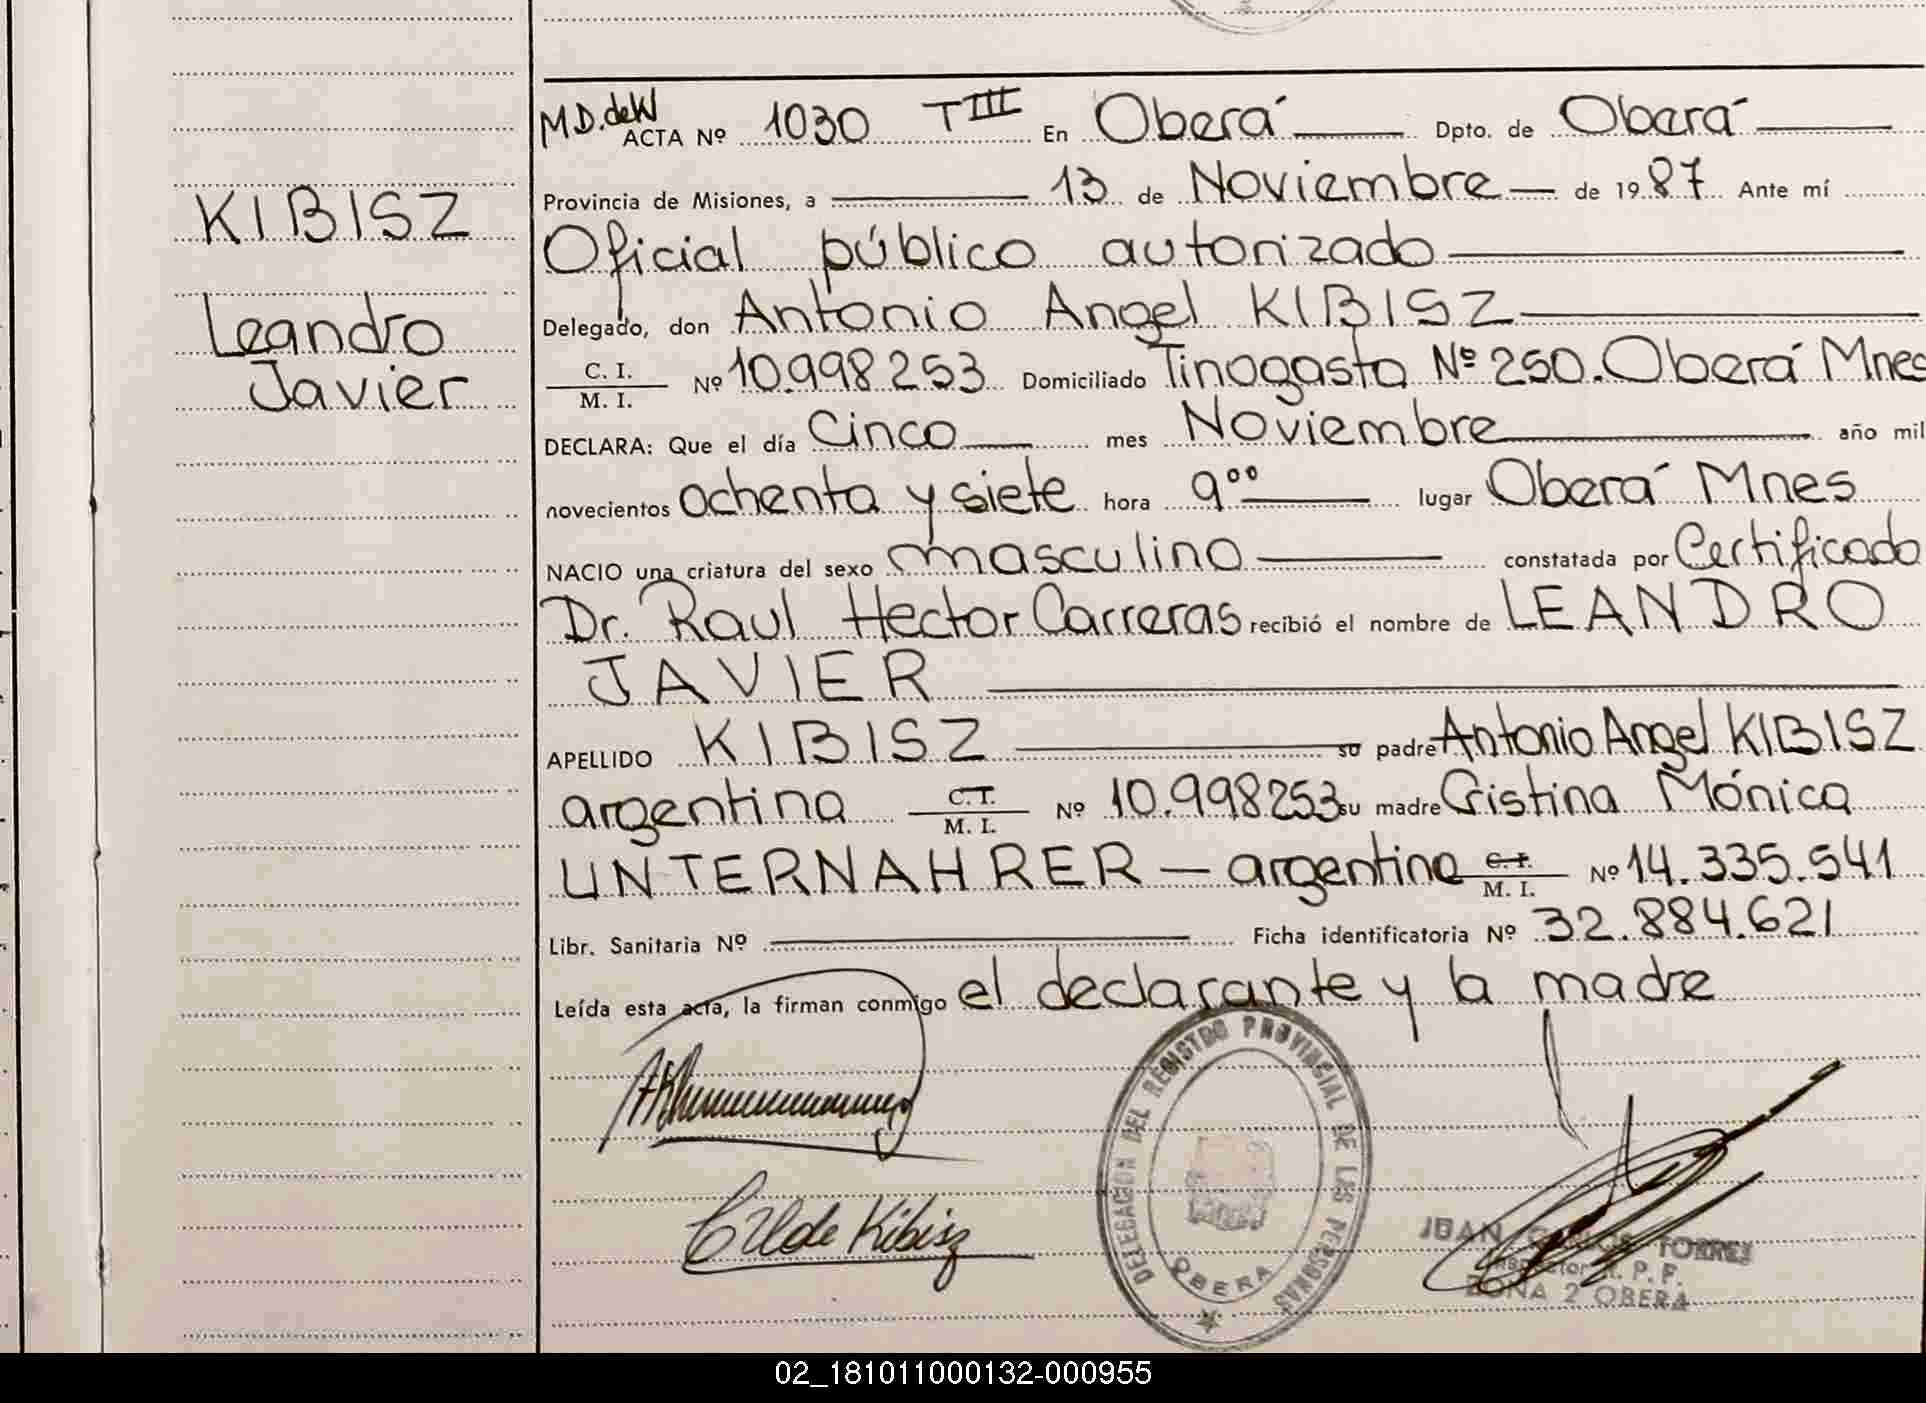 KIBISZ
Leandro
Javier
M.D.deW
ACTA Nº 1030 TIII En Oberá Dpto. de Oberá
Provincia de Misiones, a 13 de Noviembre de 1987 Ante mí
Oficial público autorizado
Delegado, don Antonio Angel KIBISZ
C. I.
M. I. Nº 10.998253 Domiciliado Tinogasta Nº 250. Oberá Mnes
DECLARA: Que el día Cinco mes Noviembre año mil
novecientos ochenta y siete hora 9°° lugar Oberá Mnes
NACIO una criatura del sexo masculino constatada por Certificado
Dr. Raul Hector Carreras recibió el nombre de LEANDRO
JAVIER
APELLIDO KIBISZ su padre Antonio Angel KIBISZ
argentina C.I. M. I. Nº 10.998253 su madre Cristina Mónica
UNTERNAHRER – argentina C.I. M. I. Nº 14.335.541
Libr. Sanitaria Nº Ficha identificatoria Nº 32.884.621
Leída esta acta, la firman conmigo el declarante y la madre
de Kibisz
DELEGACION DEL REGISTRO PROVINCIAL DE LAS PERSONAS
OBERA
JUAN CARLOS TORRES
Inspector R. P. P.
ZONA 2 OBERA
02_181011000132-000955